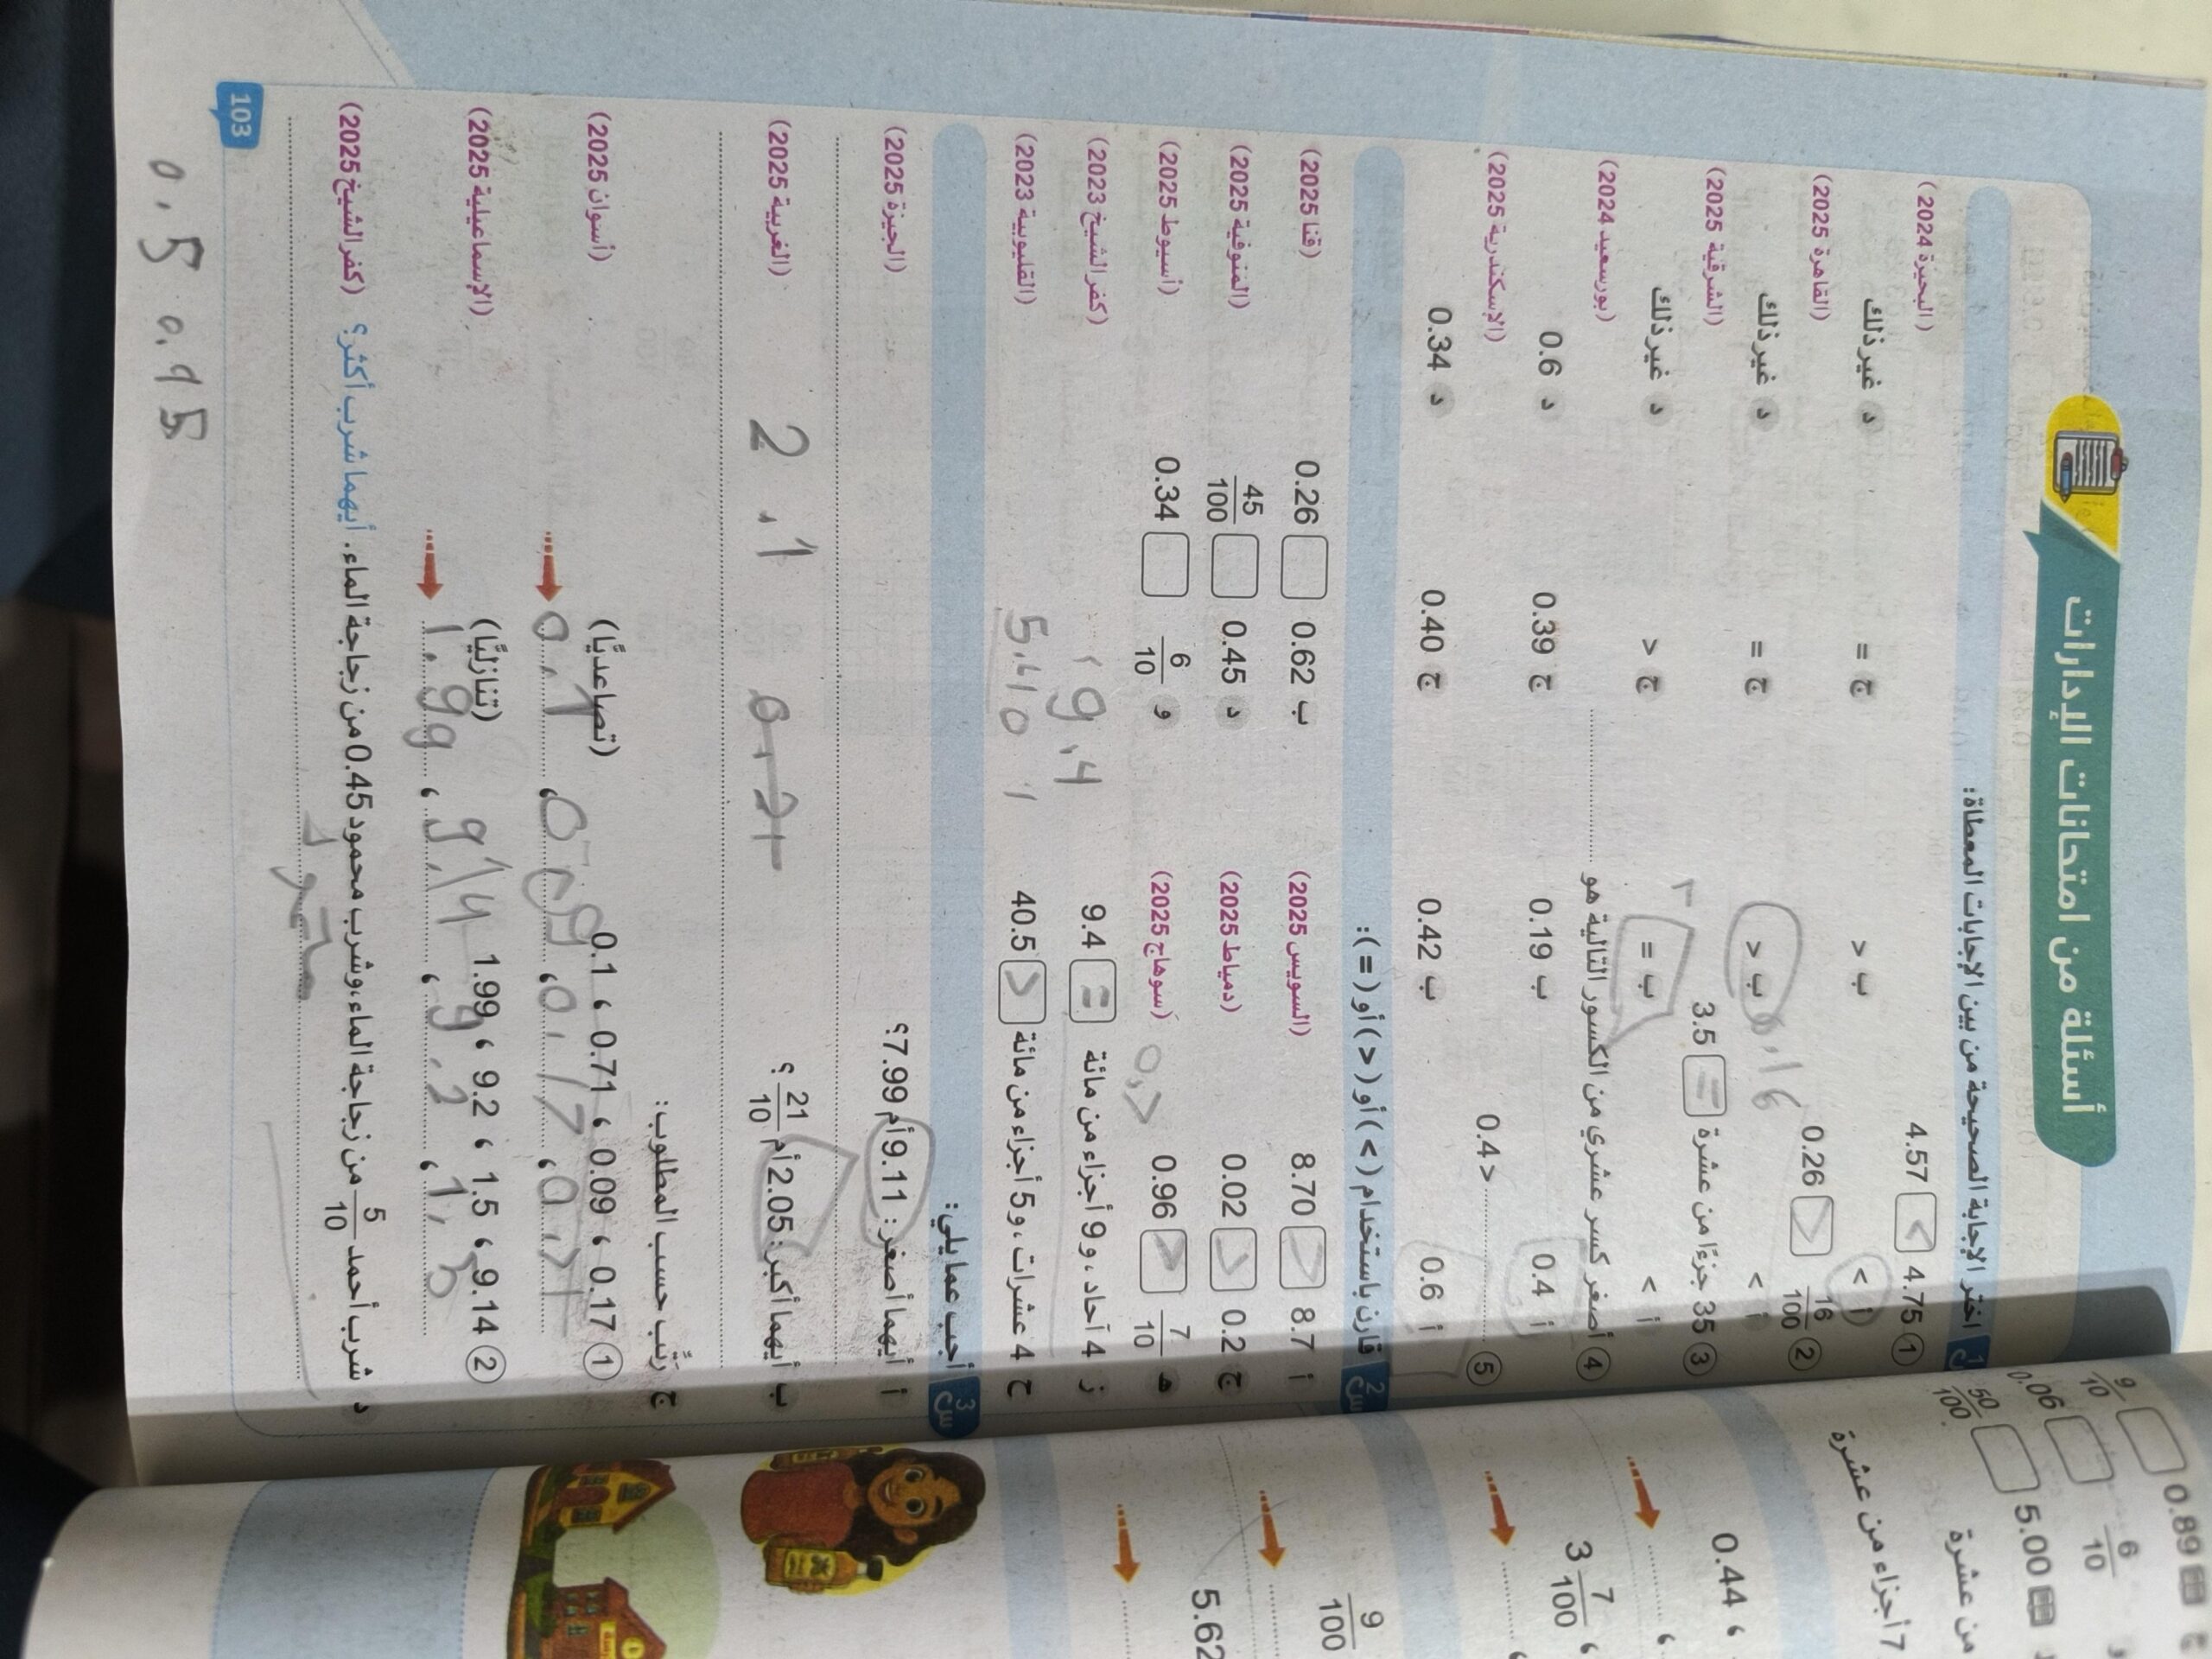 أسئلة من امتحانات الإدارات
س 1 اختر الإجابة الصحيحة من بين الإجابات المعطاة:
① 4.57 < 4.75 (البحيرة 2024)
أ < ب > ج = د غير ذلك
② 0.26 > 16/100 (القاهرة 2025)
0.16
أ < ب > ج = د غير ذلك
③ 35 جزءًا من عشرة = 3.5 (الشرقية 2025)
أ < ب = ج > د غير ذلك
④ أصغر كسر عشري من الكسور التالية هو .......... (بورسعيد 2024)
أ 0.4 ب 0.19 ج 0.39 د 0.6
⑤ .......... < 0.4 (الإسكندرية 2025)
أ 0.6 ب 0.42 ج 0.40 د 0.34
س 2 قارن باستخدام (<) أو (>) أو (=):
أ 8.70 > 8.7 (السويس 2025) ب 0.26 0.62 (قنا 2025)
ج 0.02 > 0.2 (دمياط 2025) د 45/100 0.45 (المنوفية 2025)
هـ 0.96 > 7/10 (سوهاج 2025) و 0.34 6/10 (أسيوط 2025)
ز 4 آحاد، و 9 أجزاء من مائة = 9.4 9.4 (كفر الشيخ 2023)
ح 4 عشرات، و 5 أجزاء من مائة > 40.5 (القليوبية 2023)
س 3 أجب عما يلي:
أ أيهما أصغر: 9.11 أم 7.99؟ (الجيزة 2025)
ب أيهما أكبر: 2.05 أم 21/10 ؟ (الغربية 2025)
2.1
ج رتِّب حسب المطلوب:
① 0.17 ، 0.09 ، 0.71 ، 0.1 (تصاعديًّا) (أسوان 2025)
0.1 ، 0.09 ، 0.17 ، 0.71
② 9.14 ، 1.5 ، 9.2 ، 1.99 (تنازليًّا) (الإسماعيلية 2025)
1.99 ، 9.14 ، 9.2 ، 1.5
د شرب أحمد 5/10 من زجاجة الماء، وشرب محمود 0.45 من زجاجة الماء. أيهما شرب أكثر؟ (كفر الشيخ 2025)
103
0.5 0.45
9/10 0.89
0.06 6/10
50/100 5.00
من عشرة
7 أجزاء من عشرة
0.44 ،
3 7/100 ،
9/100
5.62